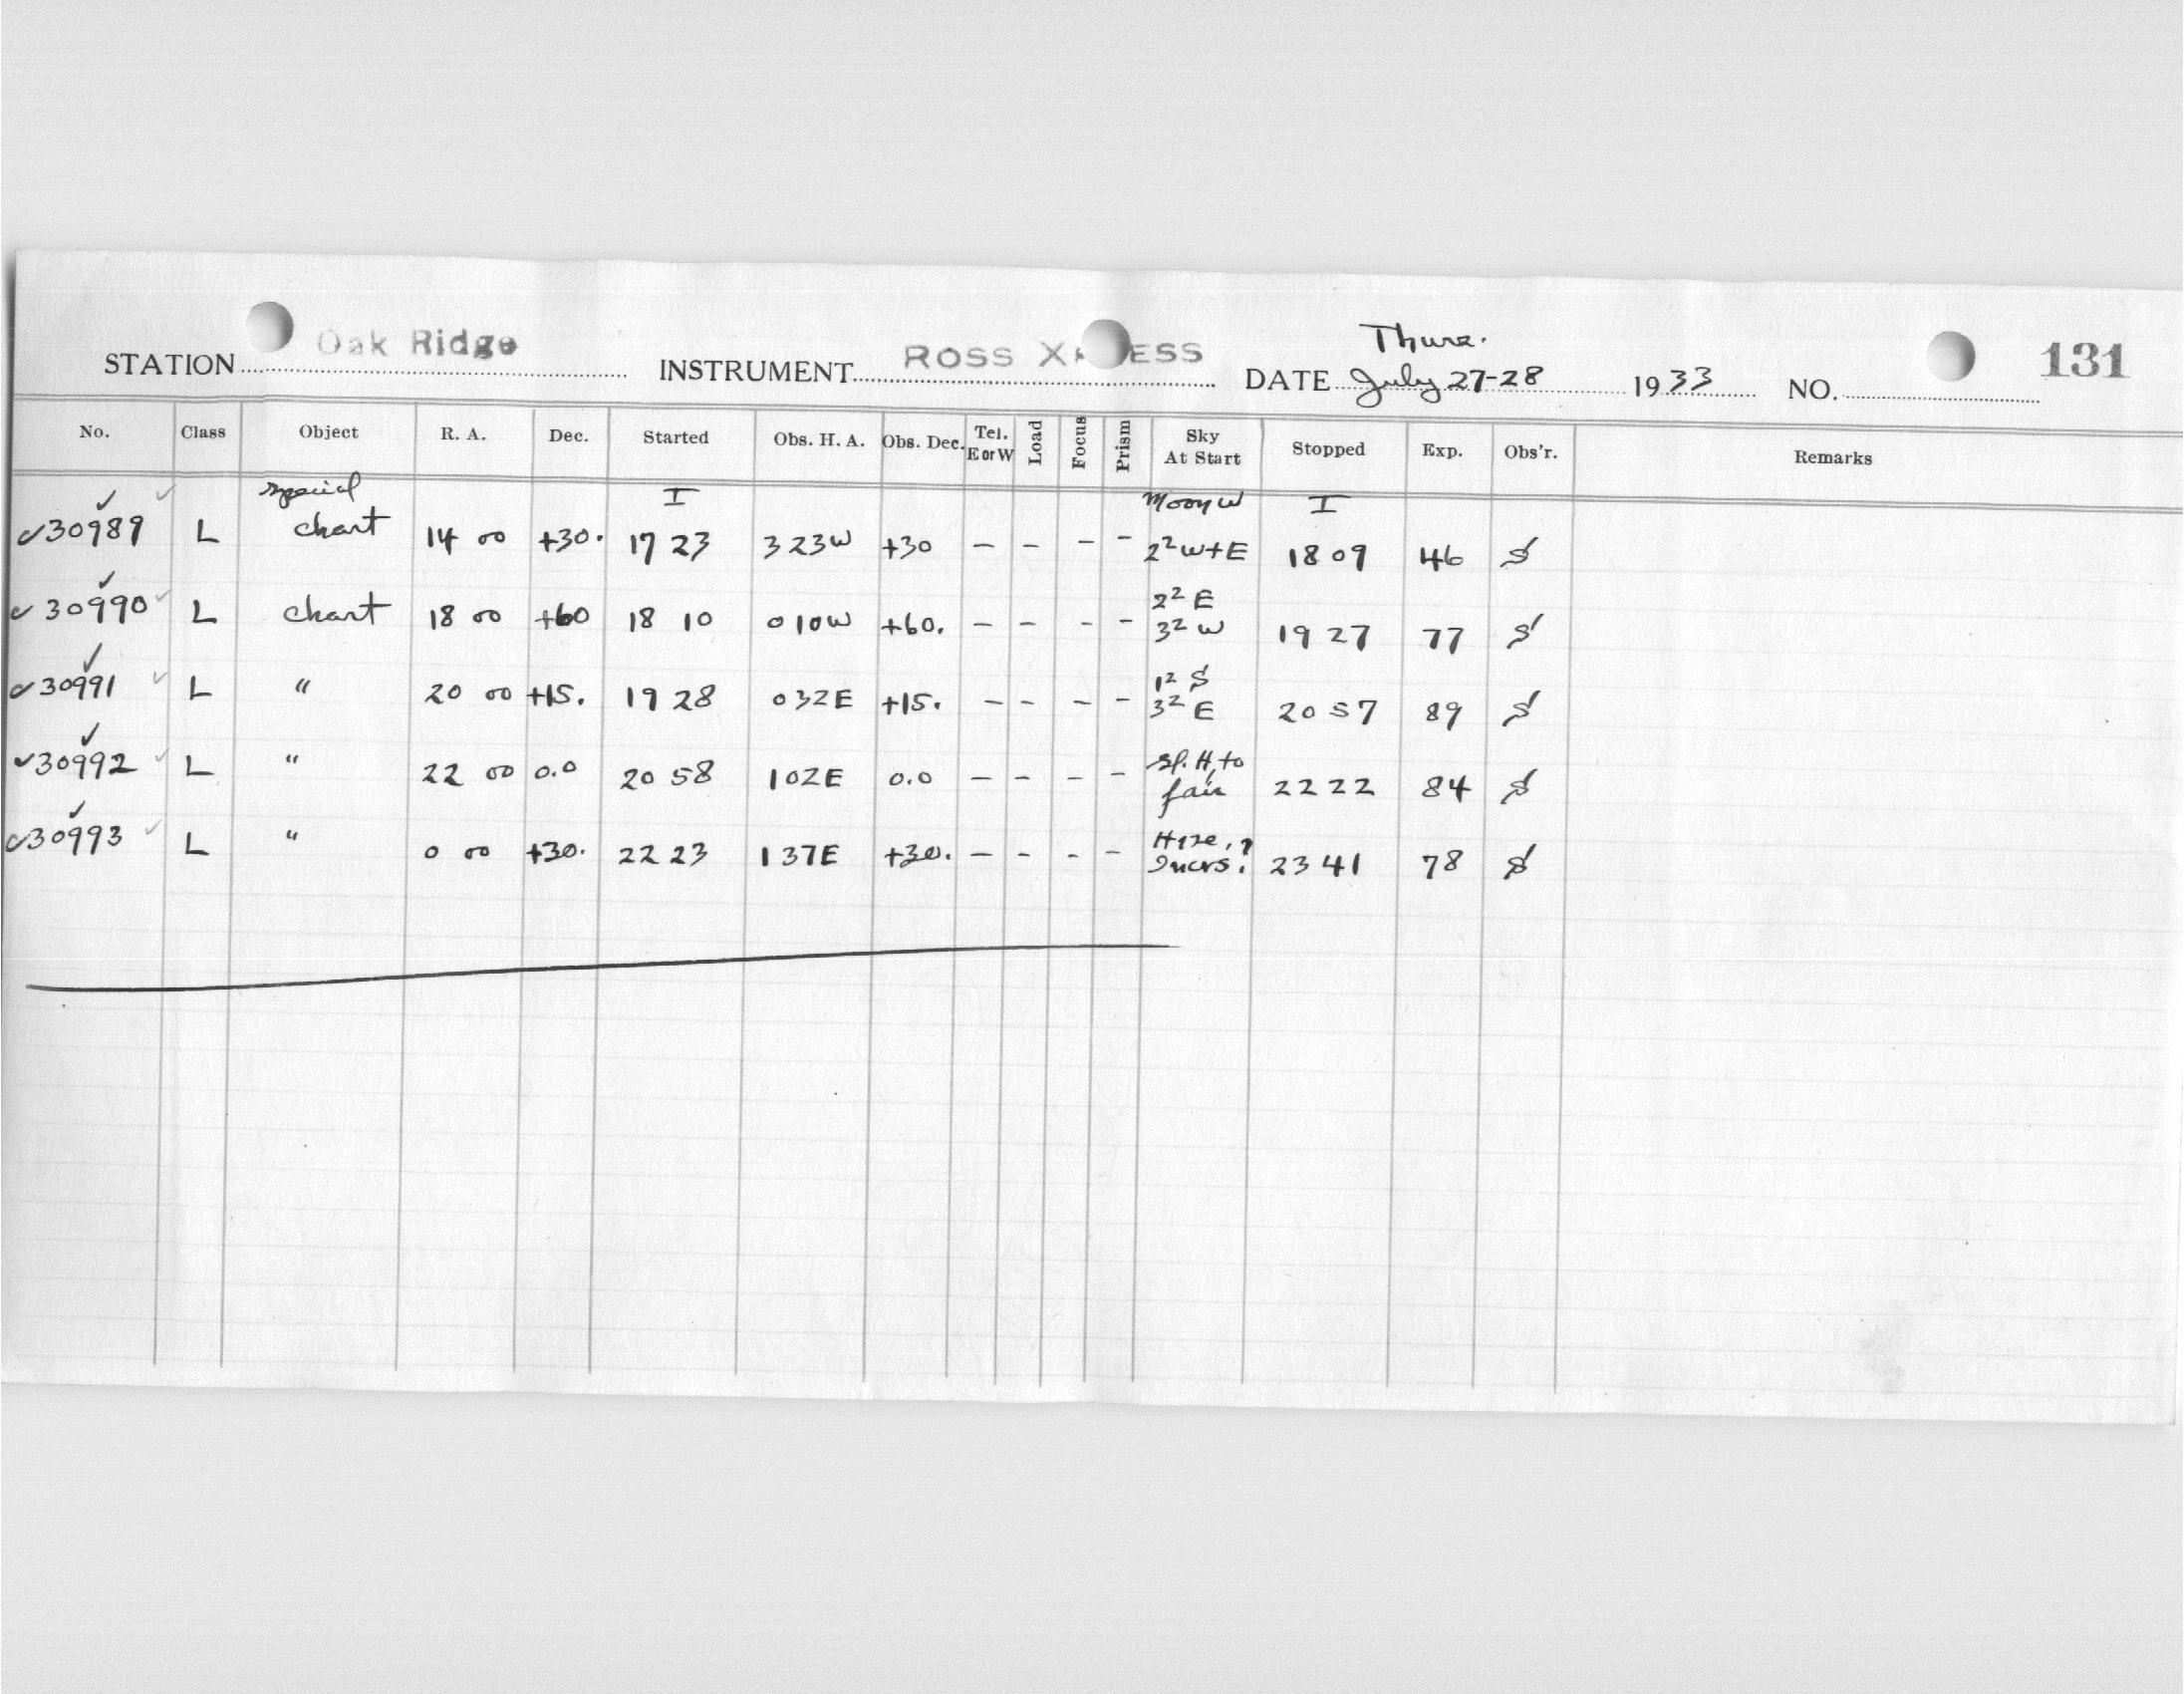 Thurs.
STATION Oak Ridge INSTRUMENT ROSS X ESS DATE July 27-28 1933 NO. 131
No. Class Object R. A. Dec. Started Obs. H. A. Obs. Dec. Tel. E or W Load Focus Prism Sky At Start Stopped Exp. Obs'r. Remarks
special I Moon W I
✓30989 L chart 14 00 +30. 17 23 323W +30 – – – – 2² W+E 18 09 46 S
2² E
✓30990 L chart 18 00 +60 18 10 010W +60. – – – – 3² W 19 27 77 S
1² S
✓30991 L " 20 00 +15. 19 28 032E +15. – – – – 3² E 20 57 89 S
✓30992 L " 22 00 0.0 20 58 102E 0.0 – – – – Sl. H. to fair 22 22 84 S
✓30993 L " 0 00 +30. 22 23 137E +30. – – – – Incrs. 23 41 78 S